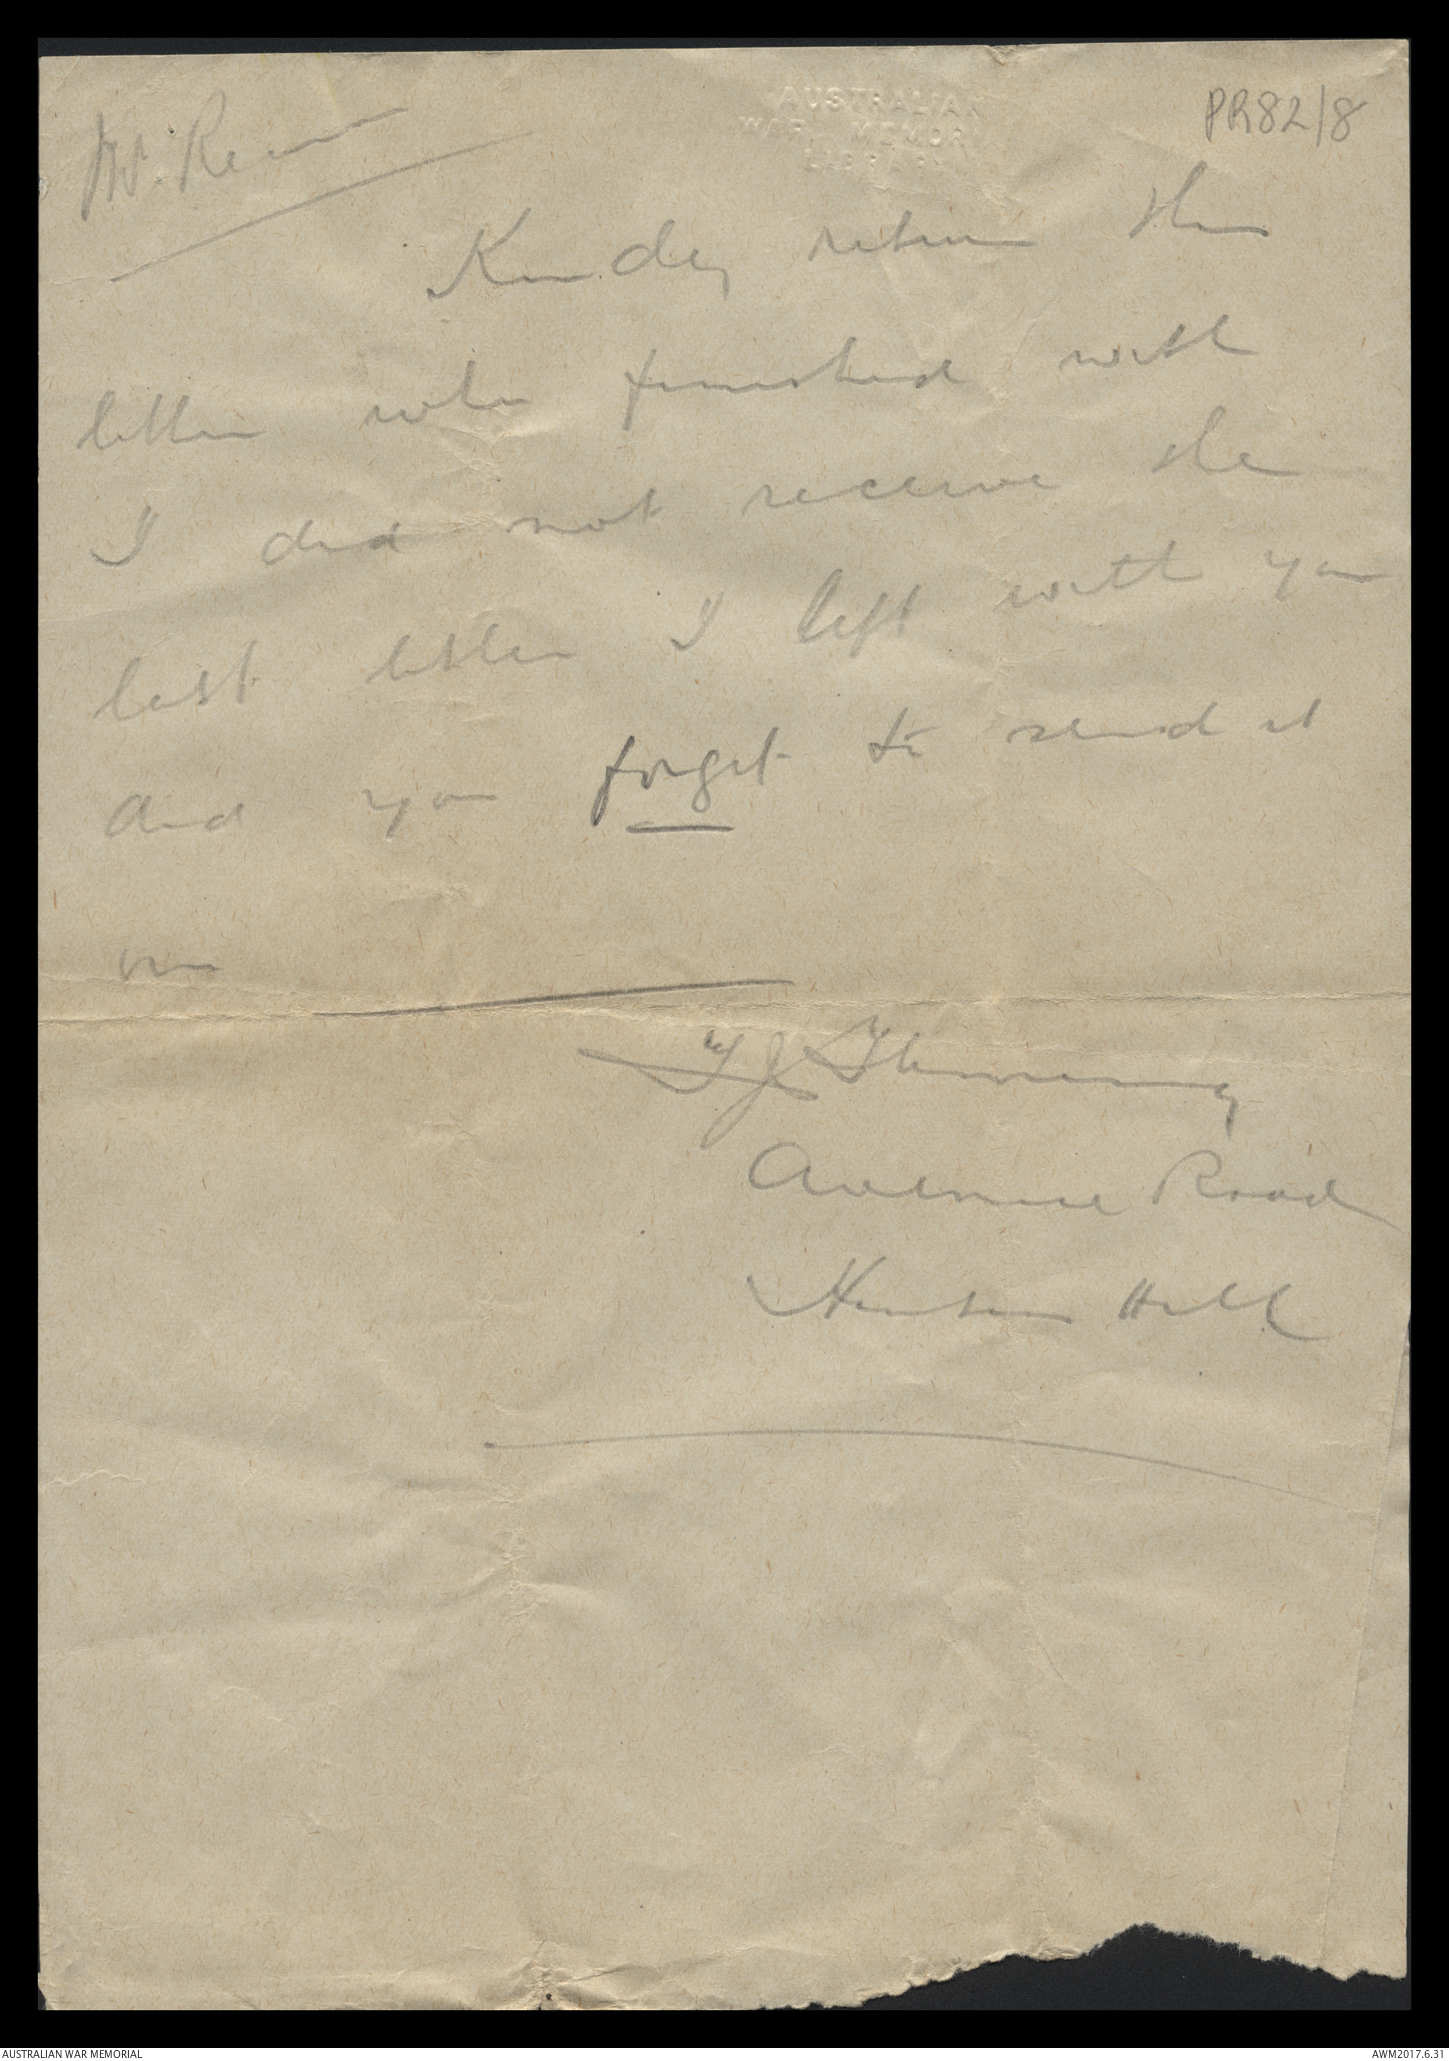 PR82/8
AUSTRALIAN
WAR MEMORI
LIBRARY
Mr. 
Kindly return this
letter when finished with
I did not receive the
last letter I left with you
and you forget to send it
on
Avenue Road
Hunters Hill
AUSTRALIAN WAR MEMORIAL
AWM2017.6.31